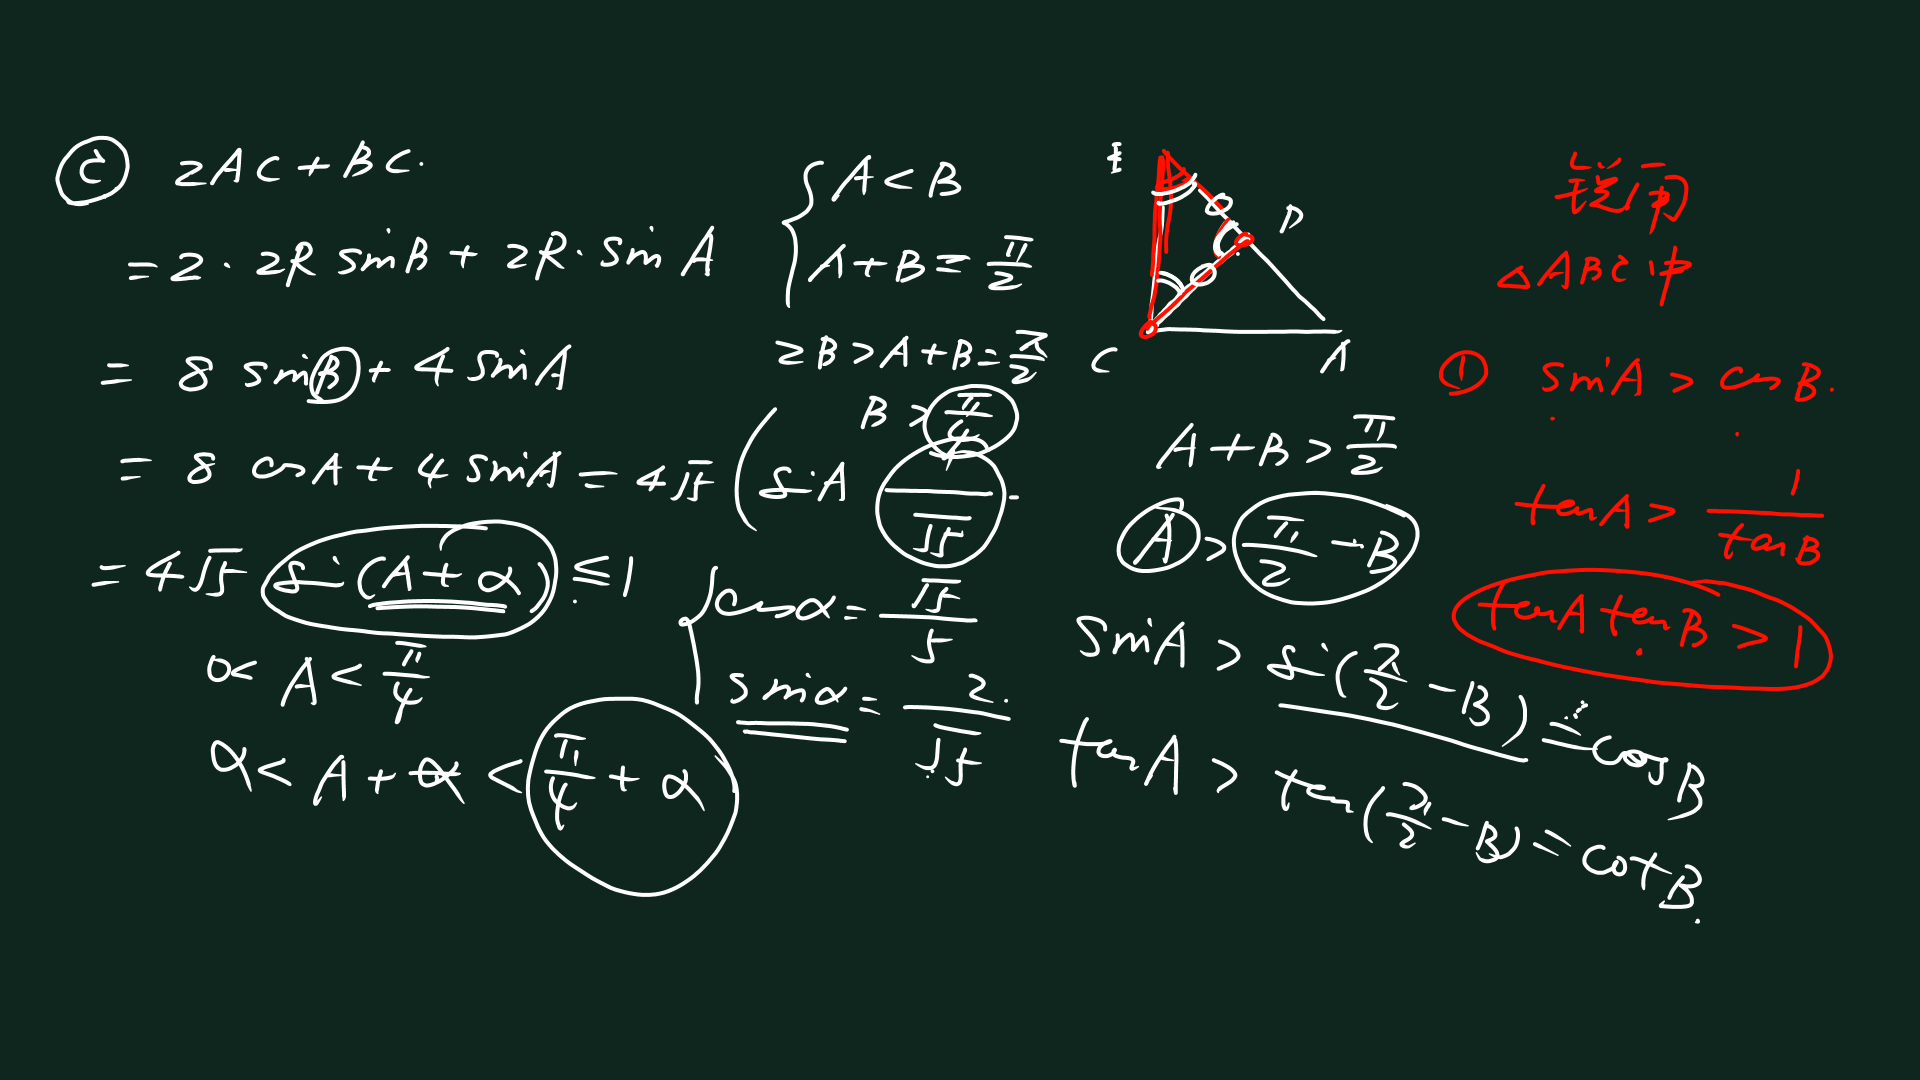 Ⓒ 2AC+BC.
=2·2R sinB+2R·sinA
= 8 sinB+4 sinA
= 8 cosA+4 sinA=4√5(sinA
=4√5 sin(A+α)≤1
0<A<π/4
α<A+α<π/4+α
{A<B
A+B=π/2
2B>A+B=π/2
B>π/4
4/√5
{cosα=√5/5
sinα=2/√5
D
C
A
A+B>π/2
A>π/2-B
sinA>sin(π/2-B)=cosB
tanA>tan(π/2-B)=cotB.
锐角
△ABC中
① sinA>cosB.
tanA>1/tanB
tanAtanB>1